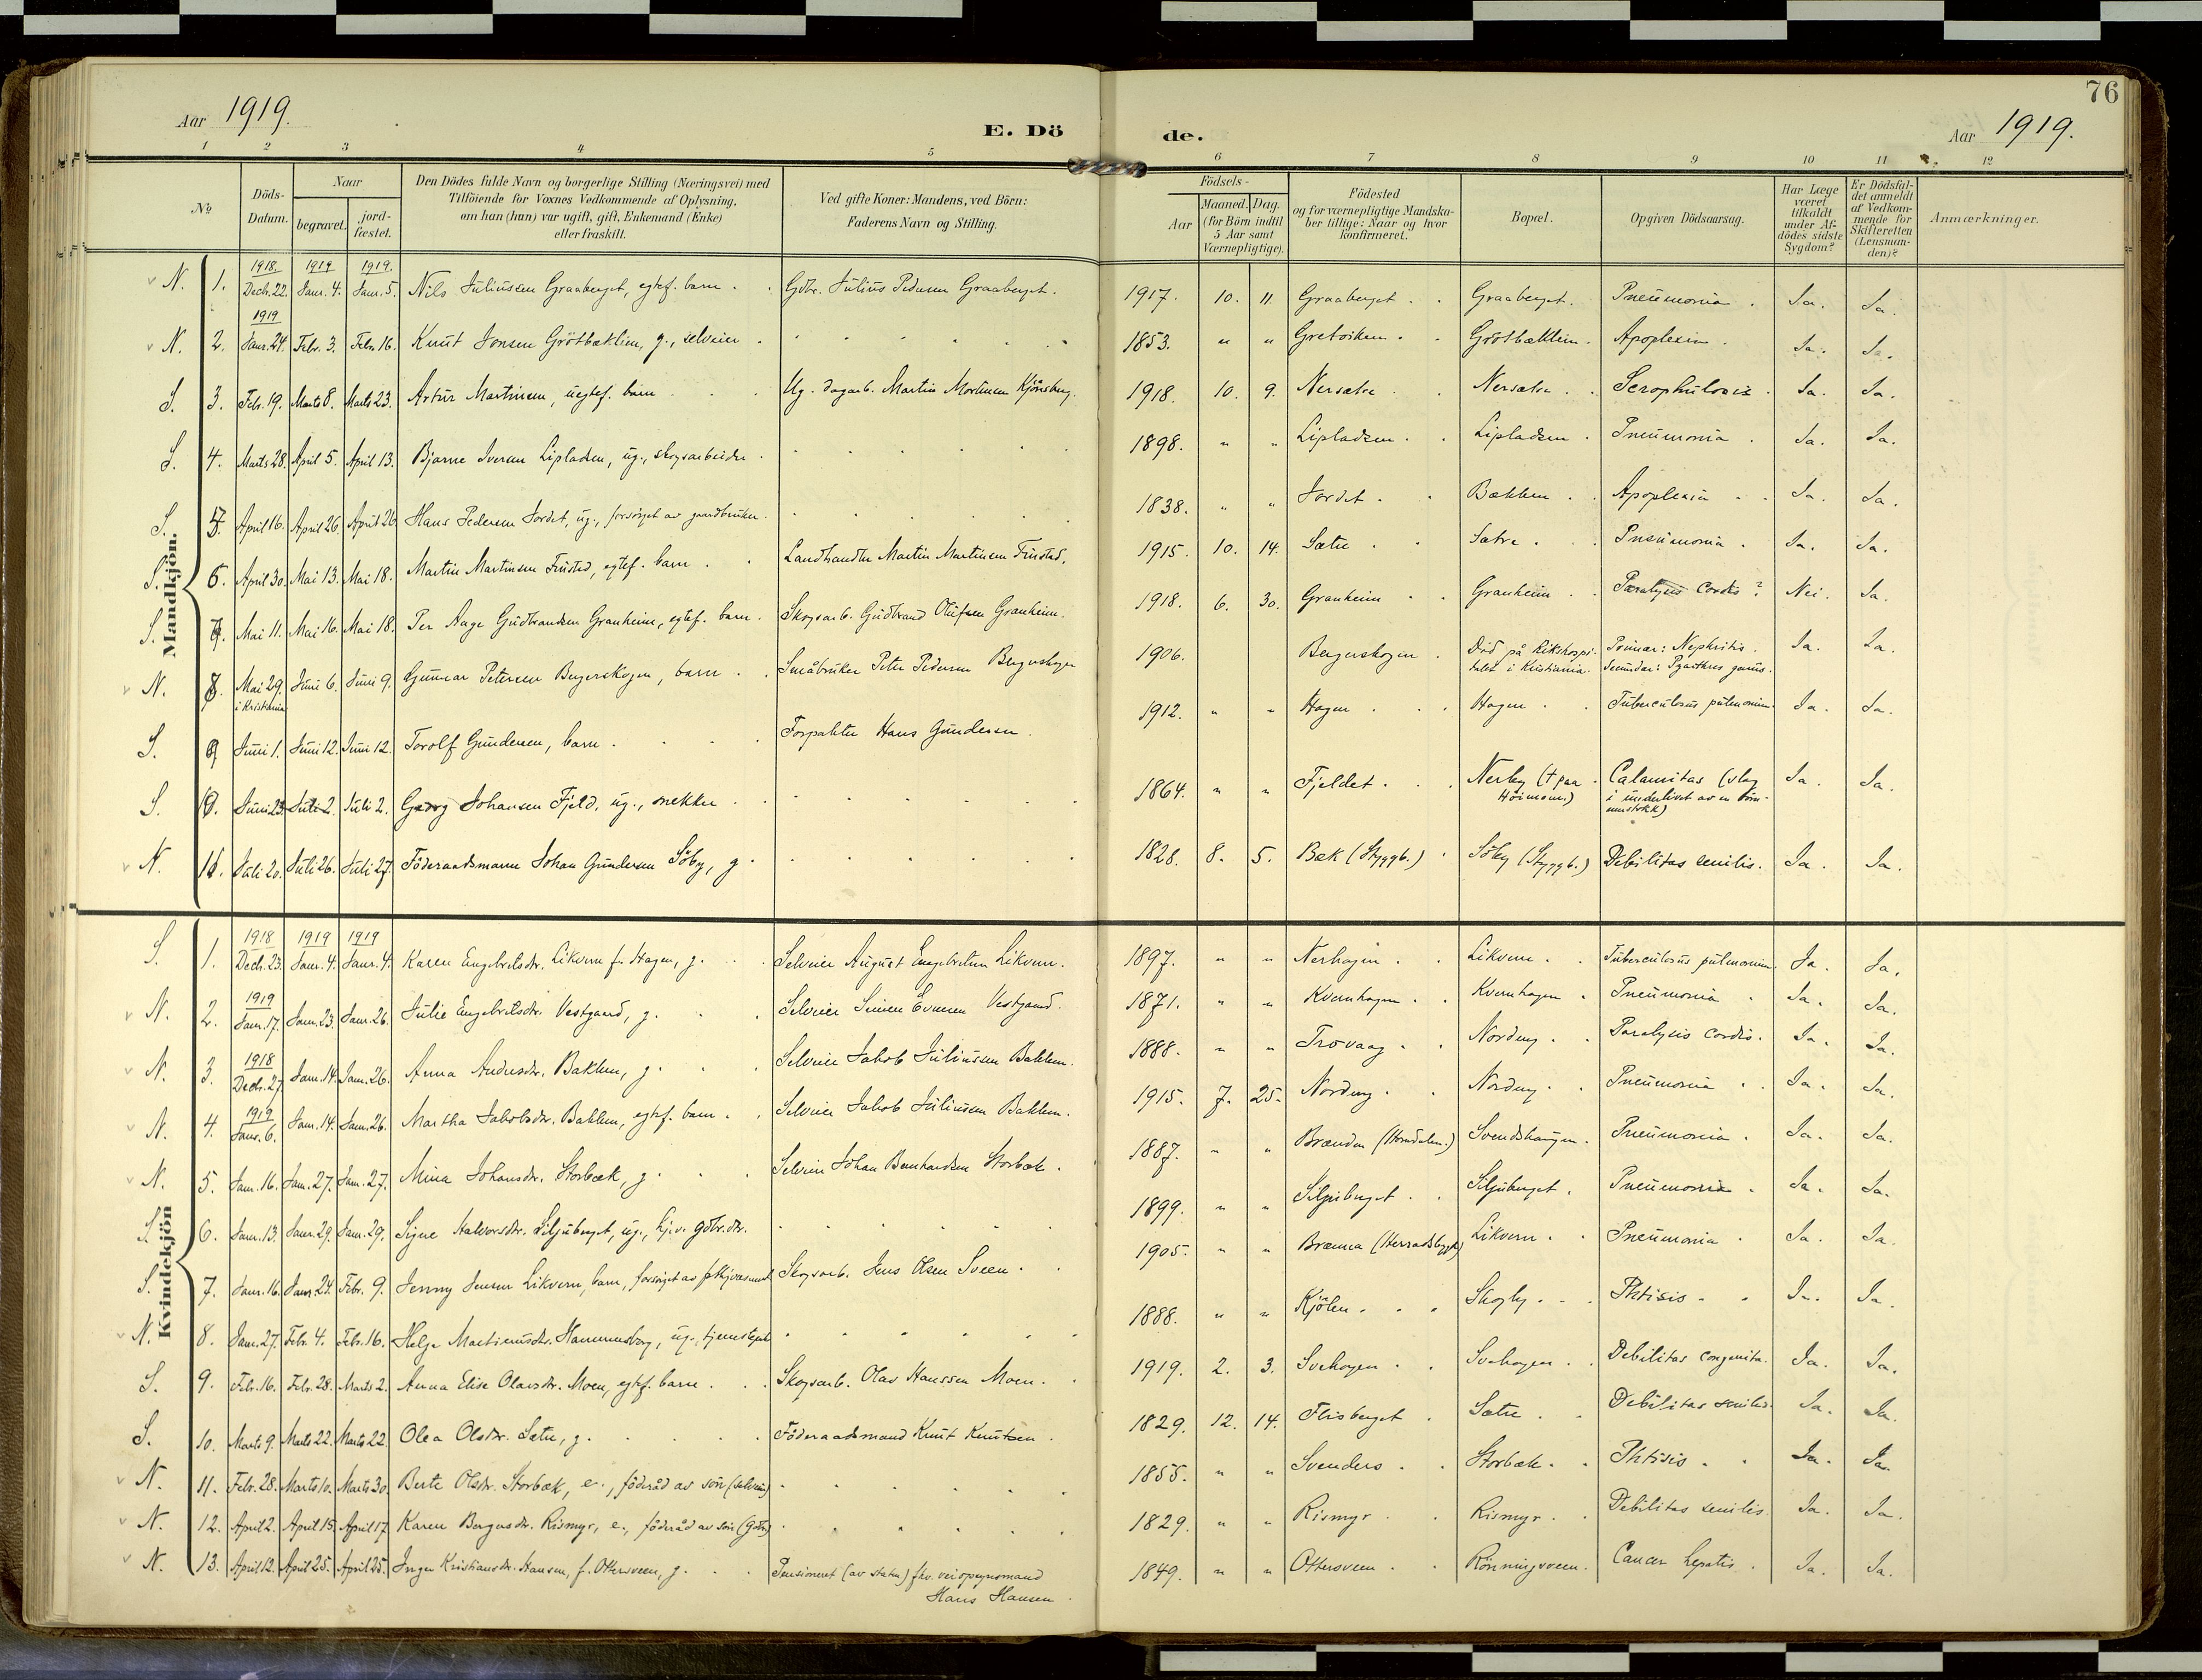 76
Aar 1919. E. Dö de. Aar 1919.
1 2 3 4 5 6 7 8 9 10 11 12
No Döds-Datum. Naar begravet. jord-fæstet. Den Dödes fulde Navn og borgerlige Stilling (Næringsvei) med Tilföiende for Voxnes Vedkommende af Oplysning, om han (hun) var ugift, gift, Enkemand (Enke) eller fraskilt. Ved gifte Koner: Mandens, ved Börn: Faderens Navn og Stilling. Födsels- Aar Maaned. Dag. (for Börn indtil 5 Aar samt Værnepligtige). Födested og for værnepligtige Mandskaber tillige: Naar og hvor konfirmeret. Bopæl. Opgiven Dödsaarsag. Har Læge været tilkaldt under Afdödes sidste Sygdom? Er Dödsfaldet anmeldt af Vedkommende for Skifteretten (Lensmanden)? Anmærkninger.
Mandkjön.
N. 1. 1918. Decb. 22. 1919 Janr. 4. 1919. Janr. 5. Nils Juliussen Graaberget, egtef. barn. Gdbr. Julius Pedersen Graaberget. 1917. 10. 11. Graaberget. Graaberget. Pneumonia. Ja. Ja.
N. 2. 1919 Janr. 24. Febr. 3. Febr. 16. Knut Jonsen Grötbæklien, g., selveier. 1853. " " Gröthæklien. Apoplexia. Ja. Ja.
S. 3. Febr. 19. Marts 8. Marts 23. Artur Martinsen, uegtef. barn. Ug. dagarb. Martin Mortinsen Kjönsberg. 1918. 10. 9. Nersætre. Nersætre. Scrophulosis. Ja. Ja.
S. 4. Marts 28. April 5. April 13. Bjarne Iversen Lipladsen, ug., skogsarbeider. 1898. " " Lipladsen. Lipladsen. Pneumonia. Ja. Ja.
S. 5. April 16. April 26. April 26. Hans Pedersen Jordet, ug., forsörget av gaardbruker. 1838. " " Jordet. Bækken. Apoplexia. Ja. Ja.
S. 6. April 30. Mai 13. Mai 18. Martin Martinsen Trusted, egtef. barn. Landhandler Martin Martinsen Trusted. 1915. 10. 14. Sætre. Sætre. Pneumonia. Ja. Ja.
S. 7. Mai 11. Mai 16. Mai 18. Per Aage Gudbrandsen Granheim, egtef. barn. Skogsarb. Gudbrand Olufsen Granheim. 1918. 6. 30. Granheim. Granheim. Paralysis cordis? Nei. Ja.
N. 8. Mai 29. i Kristiania Juni 6. Juni 9. Gunnar Petersen Bergerskogen, barn. Småbruker Peter Pedersen Bergerskogen 1906. Bergerskogen. Död på Rikshospitalet i Kristiania. Primær: Nephritis. Secundær: Ja. Ja.
S. 9. Juni 1. Juni 12. Juni 12. Torolf Gundersen, barn. Forpakter Hans Gundersen. 1912. " " Hagen. Hagen. Tuberculosis pulmonum. Ja. Ja.
S. 10. Juni 23. Juli 2. Juli 2. Georg Johansen Fjeld, ug., snekker. 1864. " " Fjeldet. Nerby († paa Höimoen.) Calamitas (slag i underlivet av en tömmerstokk) Ja. Ja.
N. 11. Juli 20. Juli 26. Juli 27. Föderaadsmann Johan Gundersen Söby, g. 1828. 8. 5. Bæk (Styggb.) Söby (Styggb.) Debilitas senilis. Ja. Ja.
Kvindekjön
S. 1. 1918 Decb. 23. 1919 Janr. 4. 1919 Janr. 4. Karen Engebretsdtr. Likvern f. Hagen, g. Selveier August Engebretsen Likvern. 1897. " " Nerhagen. Likvern. Tuberculosis pulmonum. Ja. Ja.
N. 2. 1919 Janr. 17. Janr. 23. Janr. 26. Julie Engebretsdtr. Vestgaard, g. Selveier Simen Evensen Vestgaard. 1871. " " Kvernhagen. Kvernhagen. Pneumonia. Ja. Ja.
N. 3. 1918 Decb. 27. Janr. 14. Janr. 26. Anna Andersdtr. Bakken, g. Selveier Jakob Juliussen Bakken. 1888. " " Trovaag. Norderng. Paralysis cordis. Ja. Ja.
N. 4. 1919. Janr. 6. Janr. 14. Janr. 26. Martha Jakobsdtr. Bakken, egtef. barn. Selveier Jakob Juliussen Bakken. 1915. 7. 25. Norderng. Norderng. Pneumonia. Ja. Ja.
N. 5. Janr. 16. Janr. 27. Janr. 27. Mina Johansdtr. Storbæk, g. Selveier Johan Bernhardsen Storbæk. 1887. " " Svendshaugen. Pneumonia. Ja. Ja.
S. 6. Janr. 13. Janr. 29. Janr. 29. Signe Halvorsdtr. Siljuberget, ug., hjv. gdbr.dtr. 1899. " " Siljuberget. Siljuberget. Pneumonia. Ja. Ja.
S. 7. Janr. 16. Janr. 24. Febr. 9. Jenny Jensen Likvern, barn, forsörget av Skogsarb. Jens Olsen Sveen. 1905. " " Brænna (Herradsbygd) Likvern. Pneumonia. Ja. Ja.
N. 8. Janr. 27. Febr. 4. Febr. 16. Helga Martinusdtr. Hammersberg, ug., tjenestepike 1888. " " Kjölen. Skogly. Phtisis. Ja. Ja.
S. 9. Febr. 16. Febr. 28. Marts 2. Anna Elise Olavsdtr. Moen, egtef. barn. Skogsarb. Olav Hanssen Moen. 1919. 2. 3. Svehagen. Svehagen. Debilitas congenita. Ja. Ja.
S. 10. Marts 9. Marts 22. Marts 22. Olea Olsdtr. Sætre, g. Föderaadsmand Knut Knutsen. 1829. 12. 14. Flisberget. Sætre. Debilitas senilis. Ja. Ja.
N. 11. Febr. 28. Marts 10. Marts 30. Berte Olsdtr. Storbæk, e., föderåd av sön (selveier) 1855. " " Svenders. Storbæk. Phtisis. Ja. Ja.
N. 12. April 2. April 15. April 17. Karen Bergersdtr. Rismyr, e., föderåd av sön (Gdbr.) 1829. " " Rismyr. Rismyr. Debilitas senilis. Ja. Ja.
N. 13. April 12. April 25. April 25. Inger Kristiansdtr. Hansen, f. Ottersveen, g. Pensioneret (av staten) fhv. veiopsynsmand Hans Hansen. 1849. " " Ottersveen. Rönningsveen. Cancer hepatis. Ja. Ja.